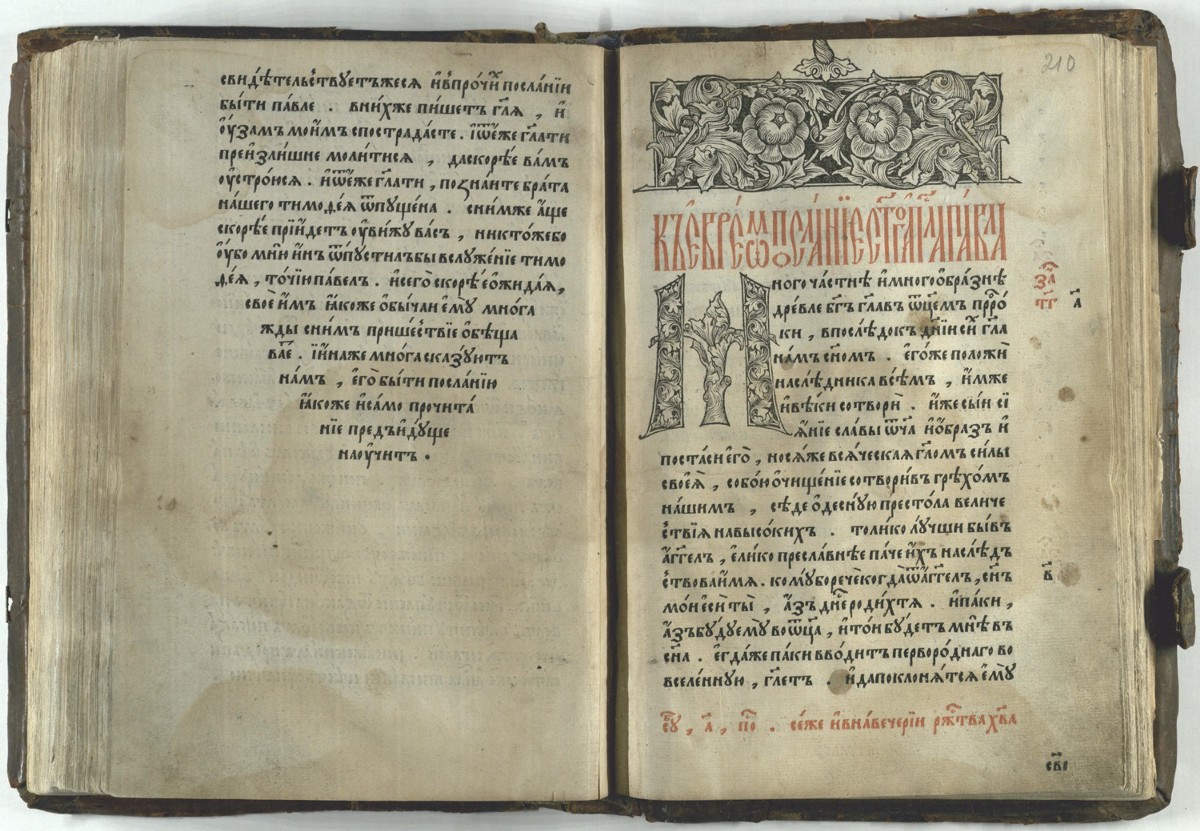 свидѣтельствуетъжеся ивпрочіи посланїи
быти павле . внихже пишетъ гл҃я , и
оузамъ моимъ спострадасте . іѿеже гл҃ати
преизлишие молитися , даскорѣе вамъ
оустроюся . иѿеже гл҃ати , познаите брата
нашего тимоѳея ѿпущена . снимже аще
скорѣе прїидетъ оувижу васъ , никтожебо
оубо мню инъ ѿпустилъбы вслуженїе тимо
ѳея , точїю павелъ . иєго скорѣе ожидая ,
своеимъ ꙗкоже обычаи ему многа
жды снимъ пришествїе обѣща
ваєт . їинаже многа сказуютъ
намъ , єго быти посланїю
ꙗкоже исамо прочита
нїе предъидуще
наоучитъ .
210
къ євреѡм посланїе ст҃го ап҃ла павла
Многочастнѣ имногообразнѣ
древле бг҃ъ глав ѿцемъ прⷪ҇ро
ки , впослѣдокъ днїи сихъ гл҃а
намъ сн҃ом . єгоже положи
наслѣдника всѣмъ , имже
ивѣки сотвори . иже сыи сї
ꙗнїе славы ѿча иобразъ и
постаси єго , носяже всяческая гл҃ом силы
своея , собою очищенїе сотворив грѣхомъ
нашимъ , сѣде одесную престола величе
ствїя навысокихъ . толико лучши бывъ
аг҃гелъ , єлико преславнѣе паче ихъ наслѣдъ
ствова имя . комубо рече когда ѿ аг҃гелъ , сн҃ъ
мои єси ты , азъ днⷭ҇ь родихтя . ипаки ,
азъ буду ему во ѿца , итои будетъ мнѣ въ
сн҃а . єгдаже паки вводитъ первороднаго во
вселенную , гл҃етъ . ида поклонятся єму
за
тг
а
в
су , а , по . сеже инавечерїи ржⷭ҇тва хв҃а
сві